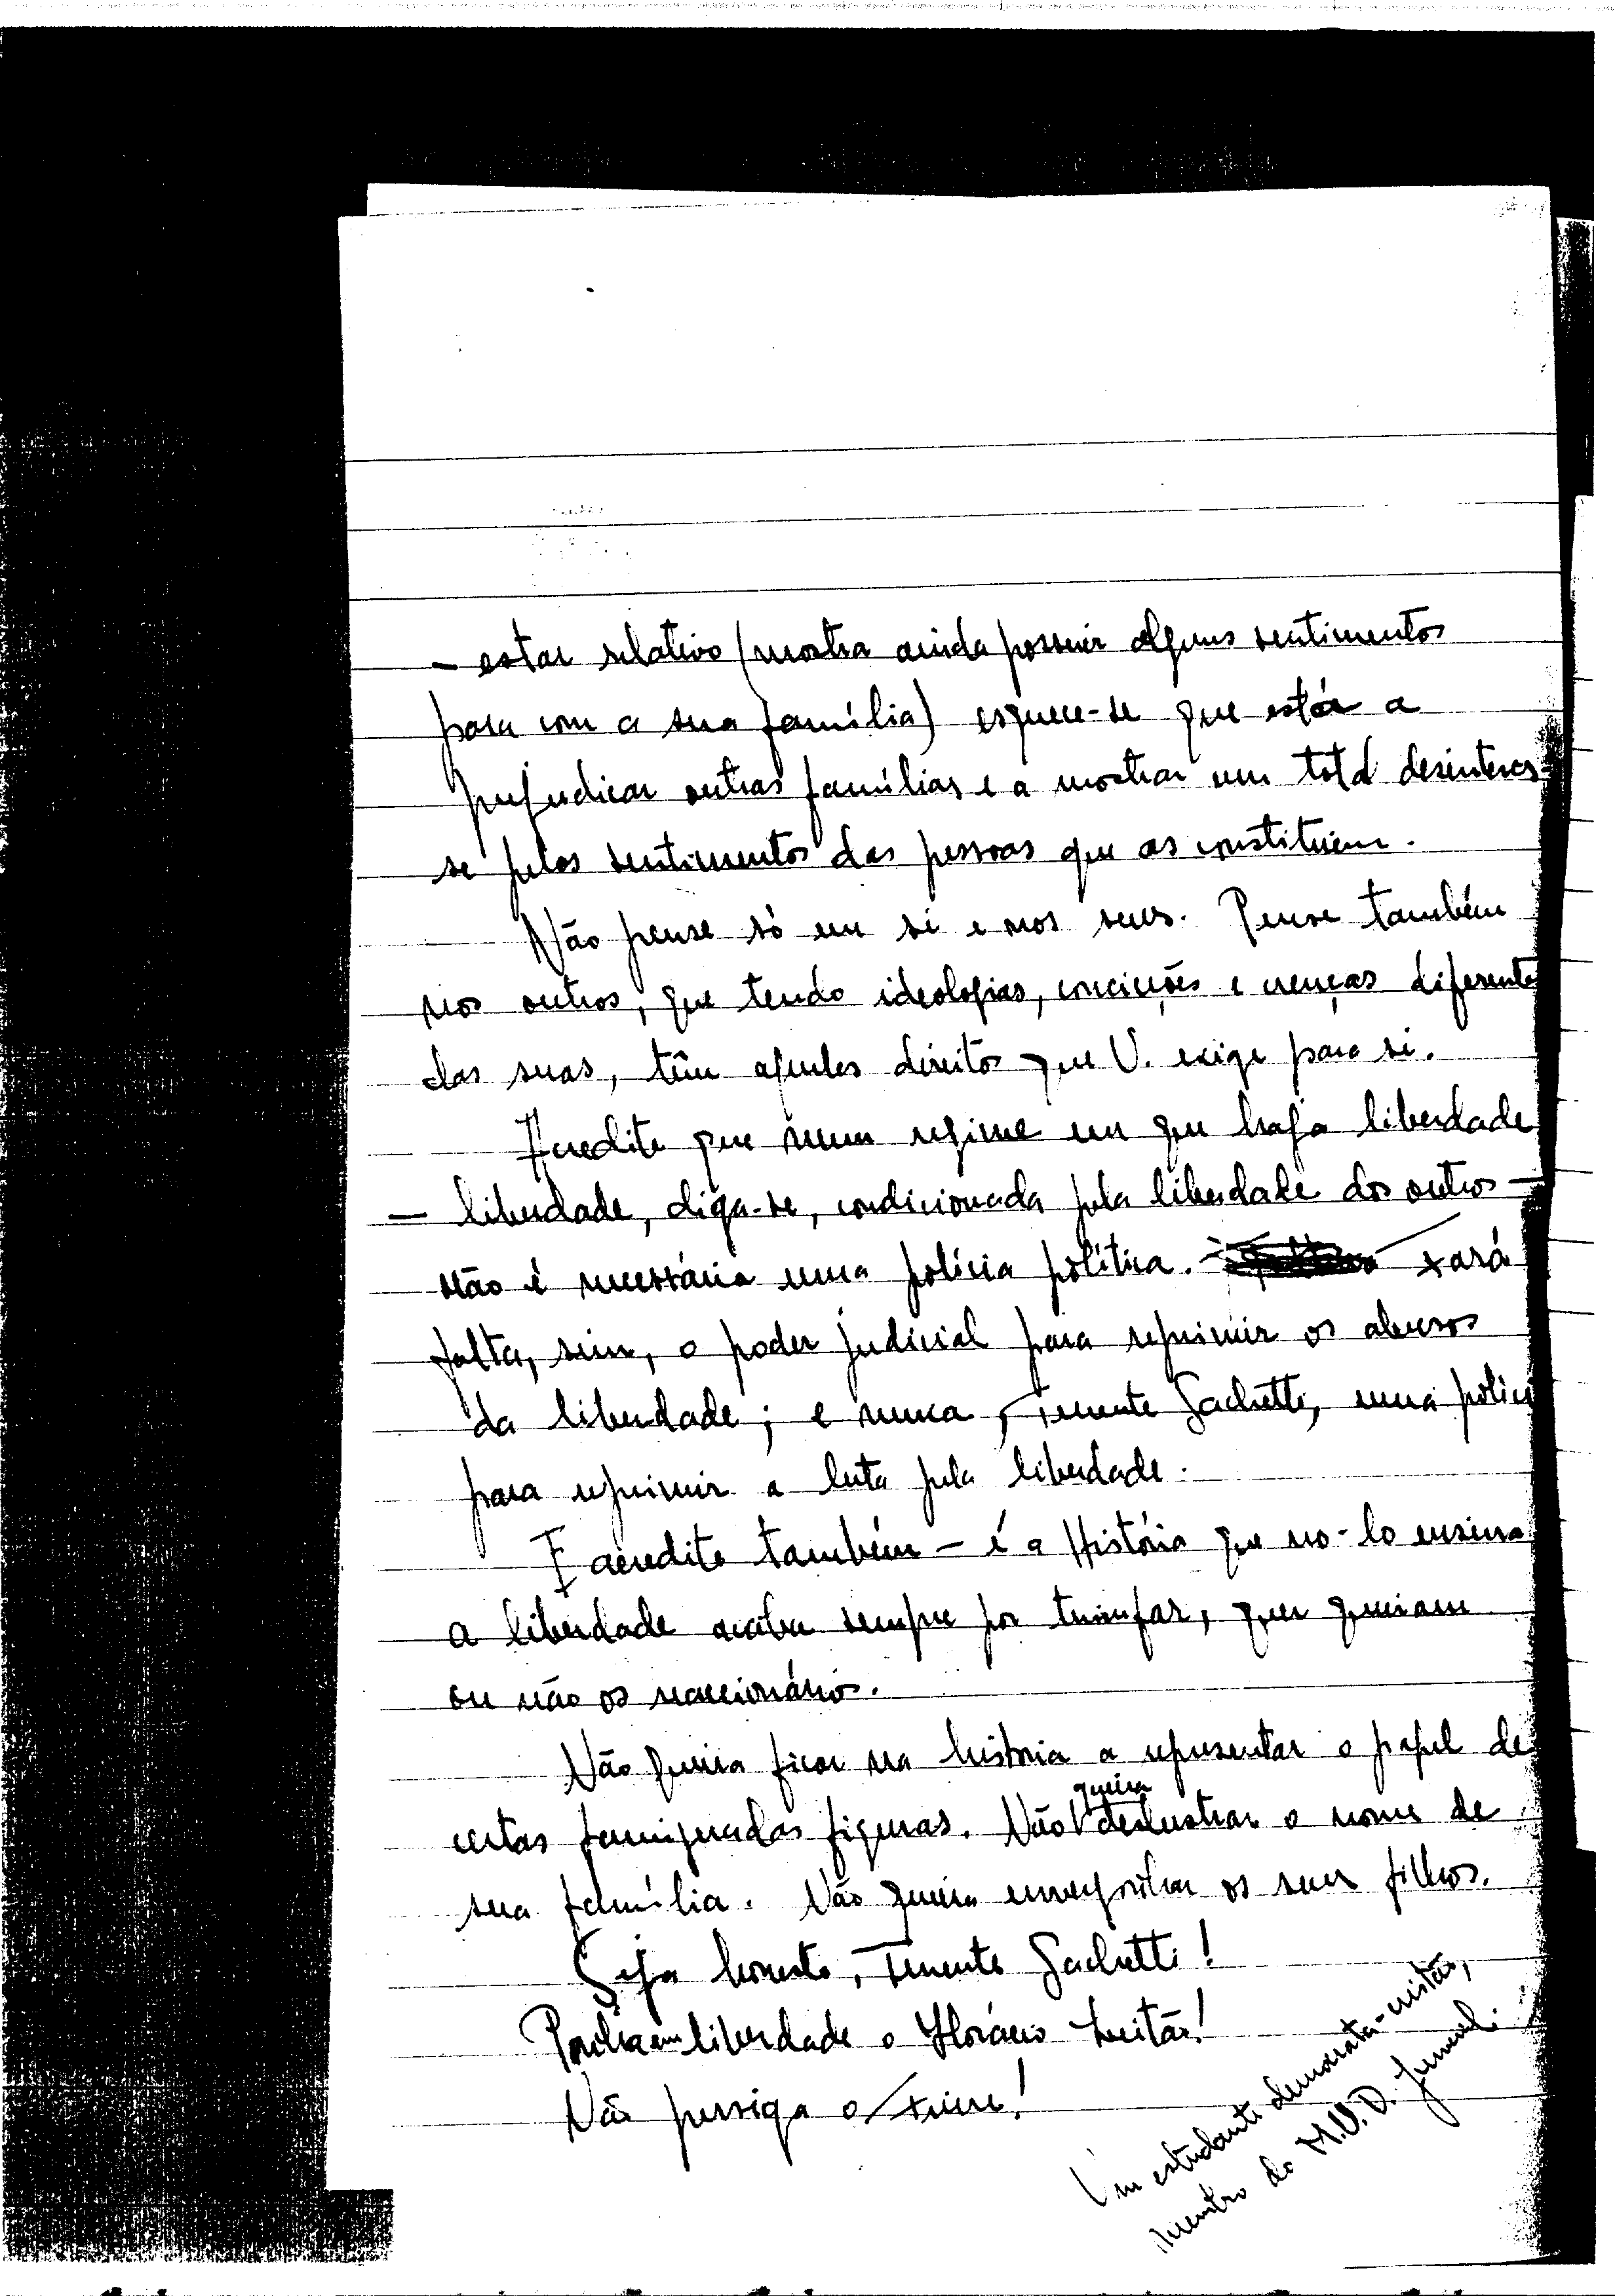 - estar relativo (mostra ainda possuir alguns sentimentos
para com a sua família) esquece-se que está a
prejudicar outras famílias e a mostrar um total desinteres-
se pelos sentimentos das pessoas que as constituem.
Não pense só em si e nos seus. Pense também
nos outros, que tendo ideologias, convicções e crenças diferentes
das suas, têm aqueles direitos que V. exige para si.
Acredite que num regime em que haja liberdade
— liberdade, diga-se, condicionada pela liberdade dos outros —
não é necessária uma polícia política. Fará
falta, sim, o poder judicial para reprimir os abusos
da liberdade; e nunca, Tenente Sachetti, uma polícia
para reprimir a luta pela liberdade.
E acredite também - é a História que no-lo ensina
a liberdade acaba sempre por triunfar, quer queiram
ou não os reaccionários.
Não queira ficar na história a representar o papel de
certas famigeradas figuras. Não queira deslustrar o nome de
sua família. Não queira envergonhar os seus filhos.
Seja honesto, Tenente Sachetti!
Ponha em liberdade o Horácio
Não persiga o
Um estudante democrata-cristão,
membro do M.U.D. Juvenil.